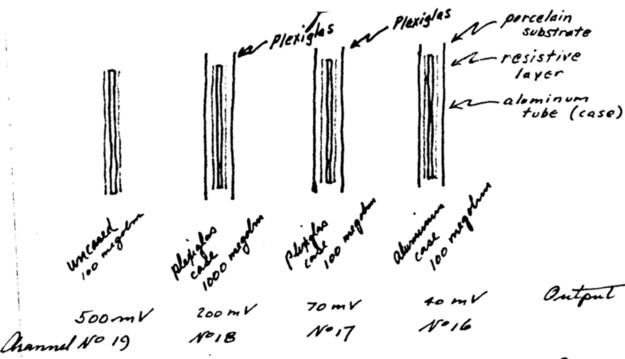 Plexiglas
Plexiglas
porcelain
substrate
resistive
layer
aluminum
tube (case)
uncased
100 megohm
plexiglas
case
1000 megohm
plexiglas
case
100 megohm
aluminum
case
100 megohm
500 mV
200 mV
70 mV
40 mV
Output
Channel No 19
No 18
No 17
No 16